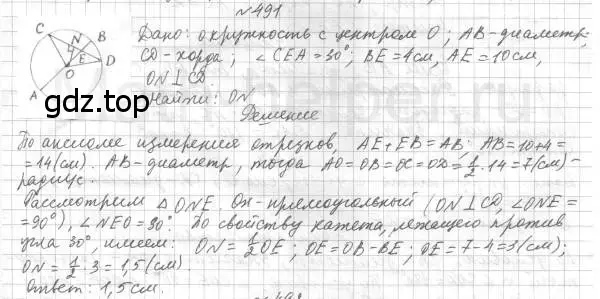 №491
Дано: окружность с центром O; AB-диаметр,
CD-хорда; ∠CEA=30°; BE=4см, AE=10см,
ON⊥CD.
Найти: ON
Решение
C N B E D O A
gdz.top
По аксиоме измерения отрезков, AE+EB=AB; AB=10+4=
=14(см). AB-диаметр, тогда AO=OB=OC=OD=1/2·14=7(см)-
радиус.
Рассмотрим △ONE. Он-прямоугольный (ON⊥CD, ∠ONE=
=90°), ∠NEO=30°. По свойству катета, лежащего против
угла 30°, имеем: ON=1/2OE; OE=OB-BE; OE=7-4=3(см);
ON=1/2·3=1,5(см).
Ответ: 1,5см.